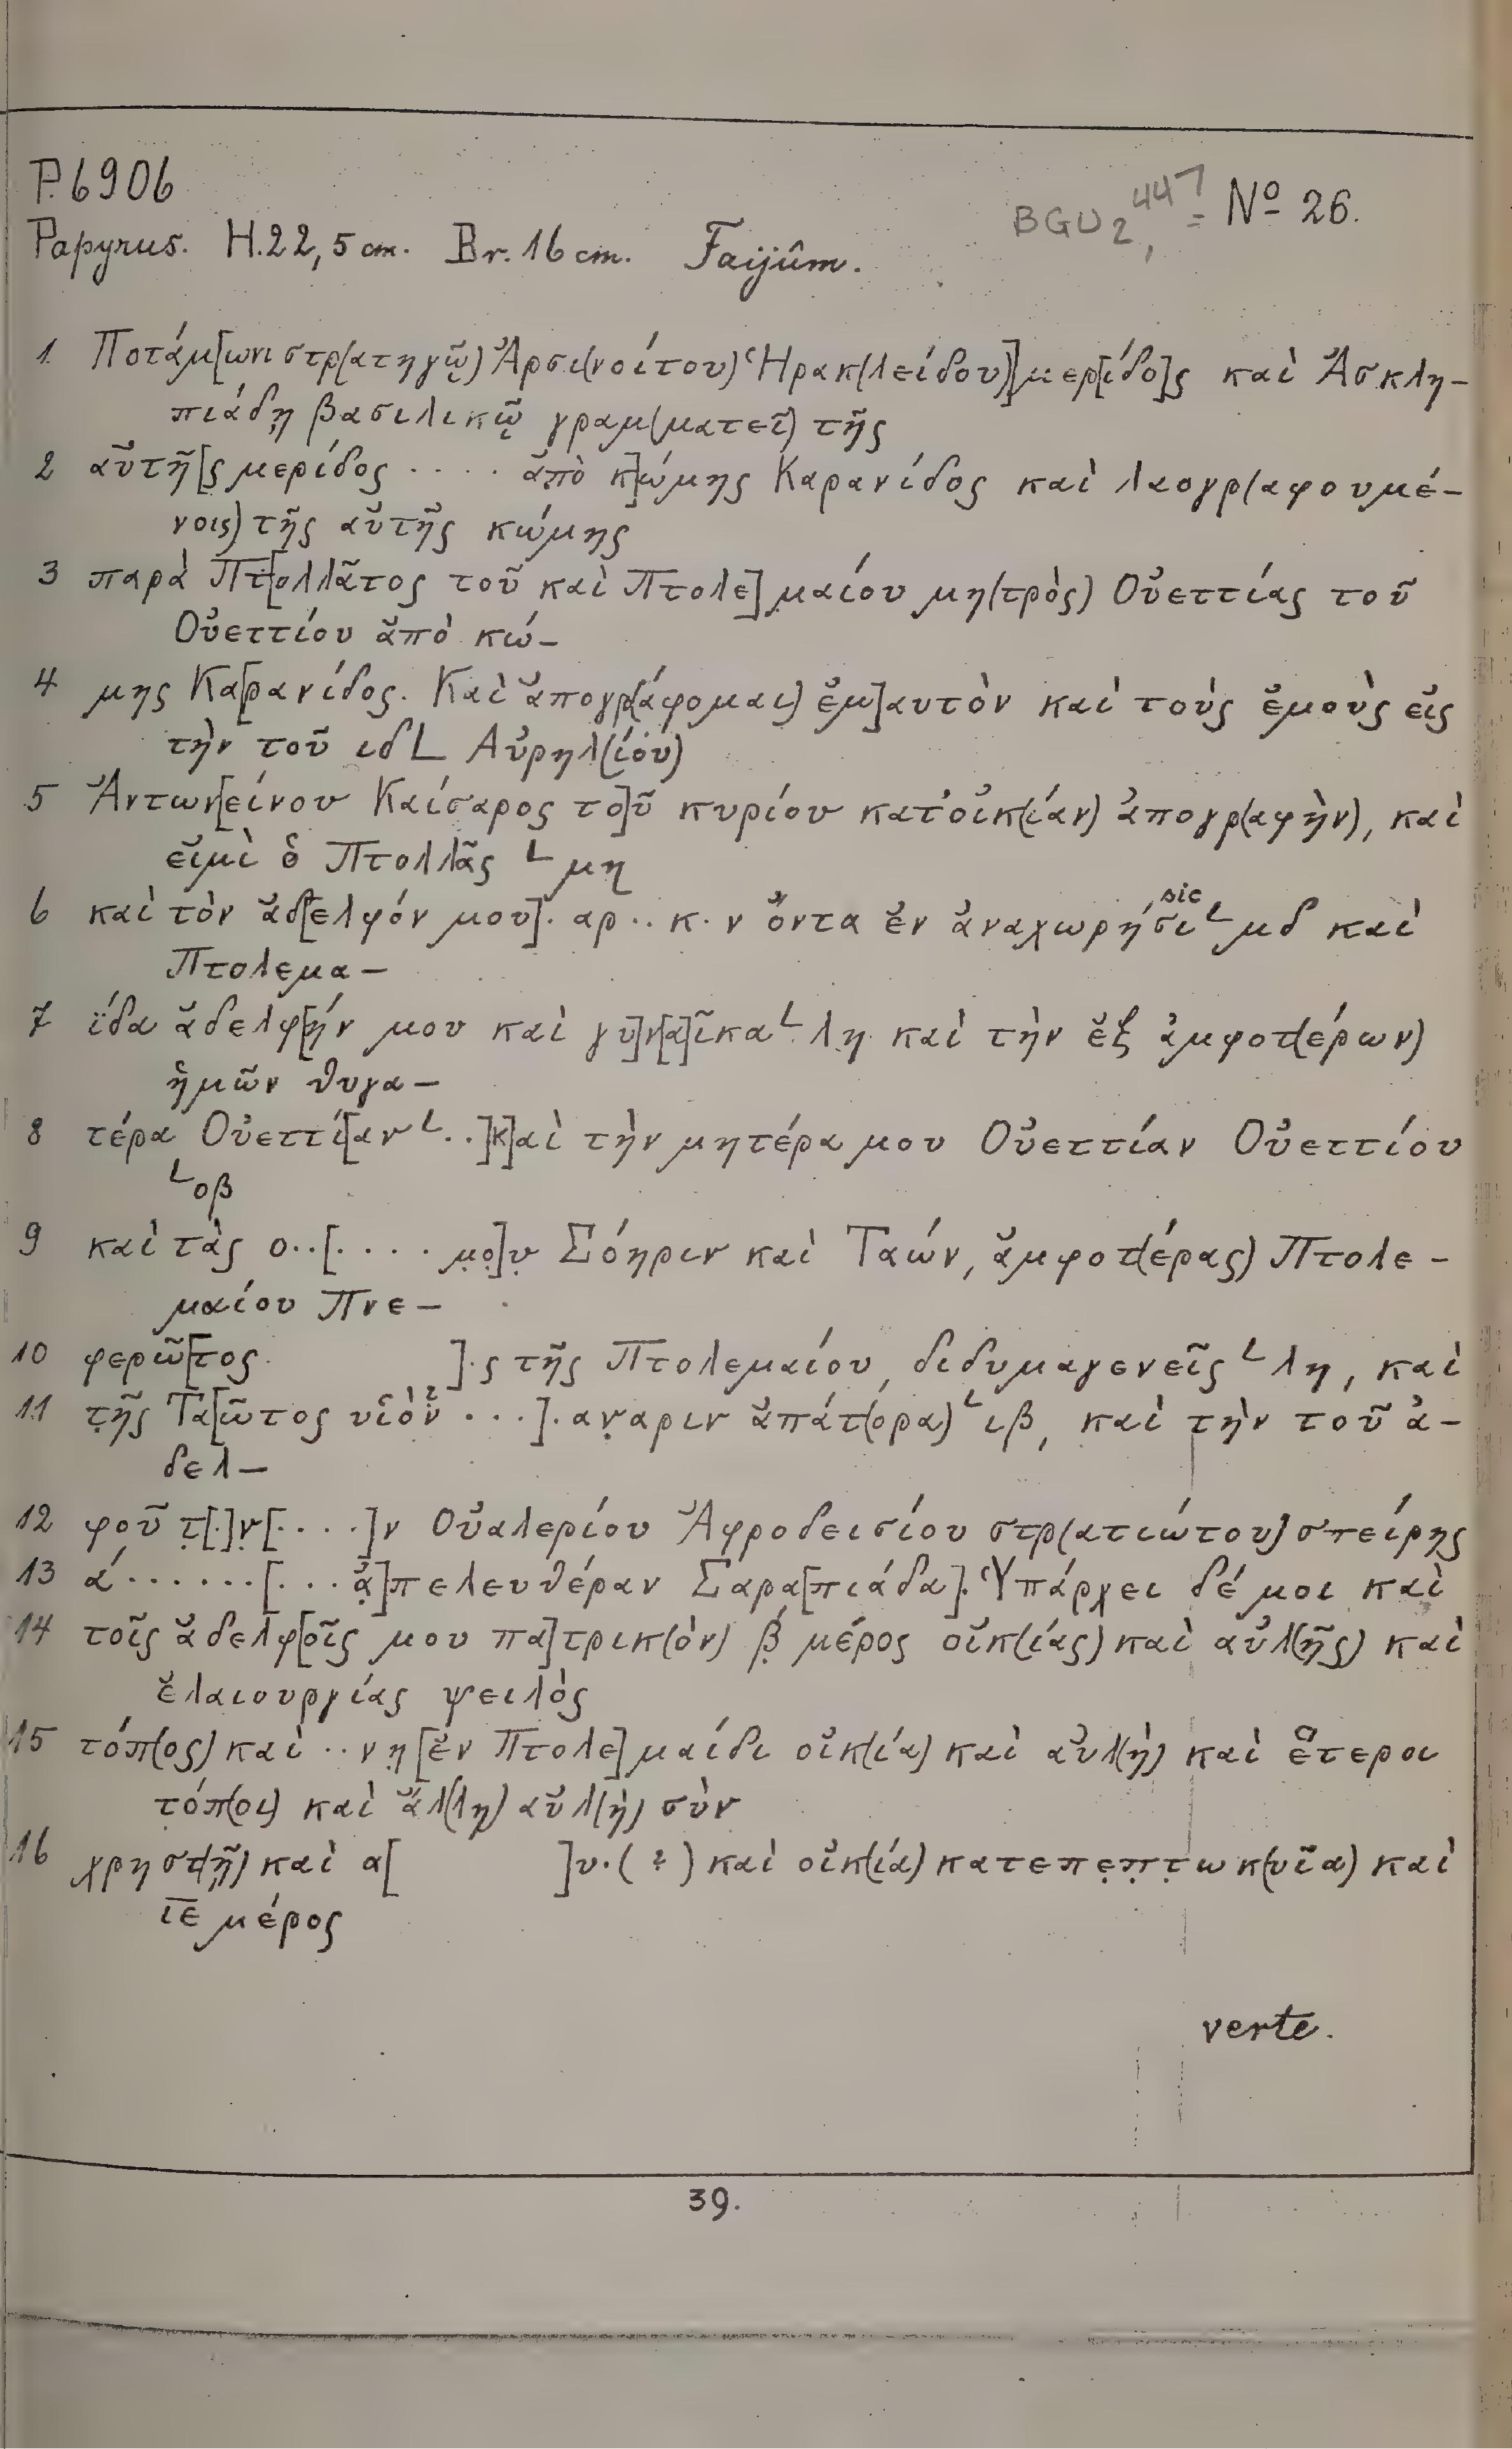 P.6906
BGU 2, 447 = Nº 26.
Papyrus. H.22,5 cm. Br. 16 cm. Faijûm.
1 Ποτάμ[ωνι στρ(ατηγῷ) Ἀρσι(νοίτου) Ἡρακ(λείδου)] μερ[ίδο]ς καὶ Ἀσκλη-
πιάδῃ βασιλικῷ γραμ(ματεῖ) τῆς
2 αὐτῆ[ς μερίδος ····· ἀπὸ κ]ώμης Καρανίδος καὶ λαογρ(αφουμέ-
νοις) τῆς αὐτῆς κώμης
3 παρὰ Πτ[ολλᾶτος τοῦ καὶ Πτολε]μαίου μη(τρὸς) Οὐεττίας τοῦ
Οὐεττίου ἀπὸ κώ-
4 μης Κα[ρανίδος. Καὶ ἀπογρ(άφομαι) ἐμ]αυτὸν καὶ τοὺς ἐμοὺς εἰς
τὴν τοῦ ιδ L Αὐρηλ(ίου)
5 Ἀντων[είνου Καίσαρος το]ῦ κυρίου κατ' οἰκ(ίαν) ἀπογρ(αφὴν), καὶ
εἰμὶ ὁ Πτολλᾶς L μη
6 καὶ τὸν ἀδ[ελφόν μου]· αρ··κ·ν ὄντα ἐν ἀναχωρήσι L μδ καὶ
sic
Πτολεμα-
7 ΐδα ἀδελφ[ήν μου καὶ γυ]ν[α]ῖκα L λη καὶ τὴν ἐξ ἀμφοτ(έρων)
ἡμῶν θυγα-
8 τέρα Οὐεττί[αν L ··] [κ]αὶ τὴν μητέρα μου Οὐεττίαν Οὐεττίου
L οβ
9 καὶ τὰς ο··[···· μ̣ο̣]υ̣ Σόηριν καὶ Ταών, ἀμφοτ(έρας) Πτολε-
μαίου Πνε-
10 φερῶ[τος ]·ς τῆς Πτολεμαίου, διδυμαγενεῖς L λη, καὶ
11 τ̣ῆς Τα[ῶτος υἱὸν? ···]·αν̣αριν ἀπάτ(ορα) L ιβ, καὶ τὴν τοῦ ἀ-
δελ-
12 φοῦ τ̣[·]ν̣[····]ν Οὐαλερίου Ἀφροδεισίου στρ(ατιώτου) σπείρης
13 ά······[··· ἀ̣]πελευθέραν Σαρα[πιάδα]. Ὑπάρχει δέ μοι καὶ
14 τοῖς ἀδελφ[οῖς μου πα]τρικ(ὸν) β̣ μέρος οἰκ(ίας) καὶ αὐλ(ῆς) καὶ
ἐλαιουργίας ψειλὸς
15 τόπ(ος) καὶ ··νη̣ [ἐν Πτολε]μαίδι οἰκ(ία) καὶ αὐλ(ὴ) καὶ ἕτεροι
τόπ(οι) καὶ ἄλ(λη) αὐλ(ὴ) σὺν
16 χρηστ(ῇ) καὶ α[ ]υ·(?) καὶ οἰκ(ία) κατεπε̣π̣τ̣ωκ(υῖα) καὶ
ιε μέρος
verte.
39.